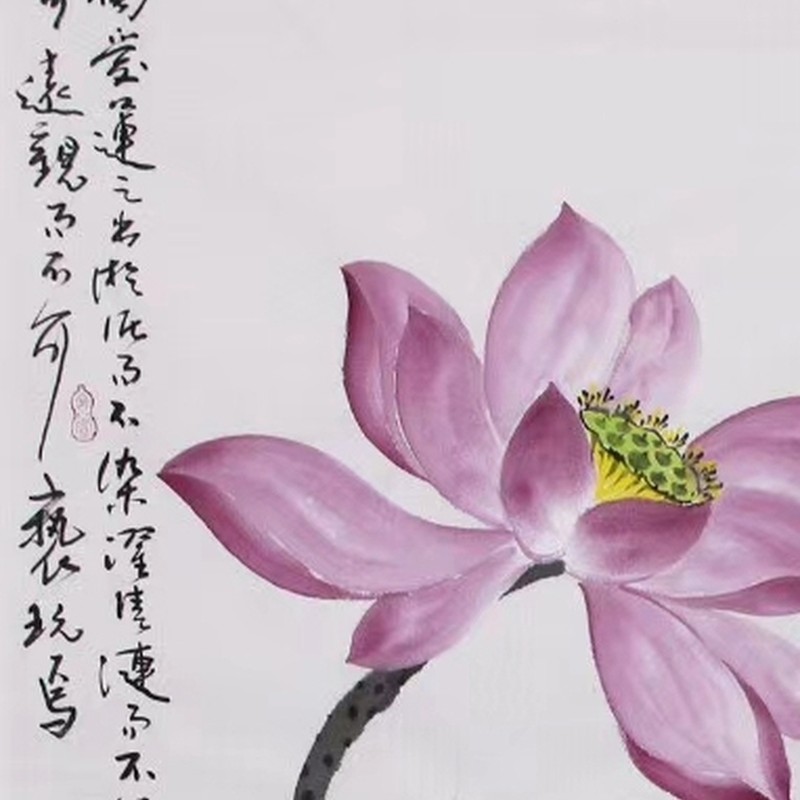 愛蓮之出淤泥而不染濯清漣而不
遠觀而不可褻玩焉